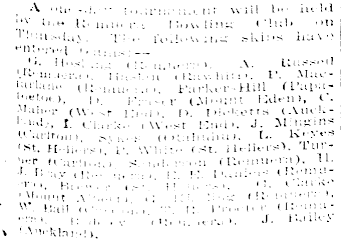 A one-day tournament will be held
by the Remuera Bowling Club on
Thursday. The following skips have
entered teams:—
G. Hosking (Remuera), A. Russell
(Remuera), (Rawhiti), P. Mac-
farlane (Remuera), Parker-Hill (Papa-
toetoe), D. Fraser (Mount Eden), C.
Maher (West End), D. Ricketts (Auck-
land), I. Clarke (West End), J. Muggins
(Carlton), Sykes (Otahuhu), L. Keyes
(St. Heliers), P. White (St. Heliers), Tur-
ner (Carlton), Sanderson (Remuera), H.
J. Bray (Remuera), (Remu-
era), (St. Heliers), C. Clarke
(Mount Albert), (Remuera),
W. Ball (Carlton), Proctor (Remu-
era), (Remuera), J. Bailey
(Auckland).